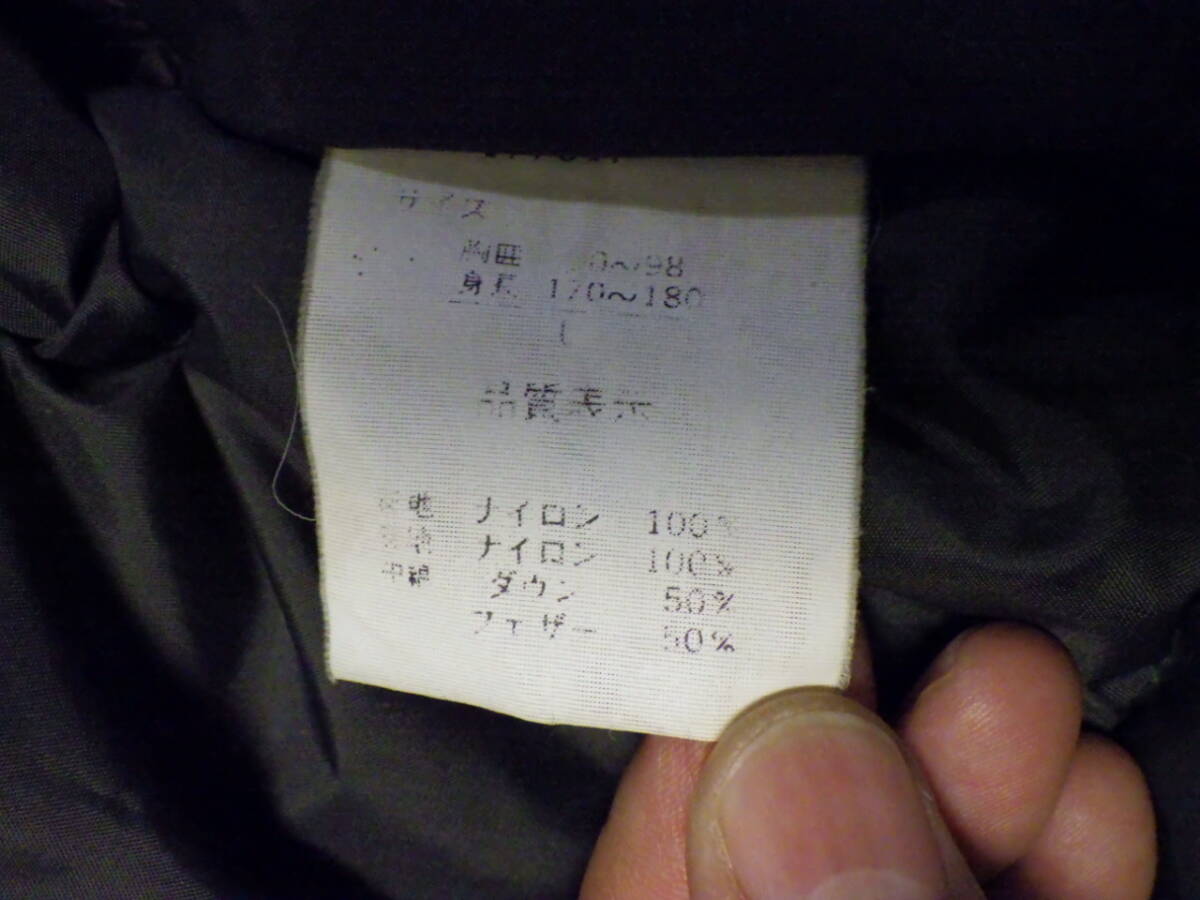 サイズ
胸囲 90~98
身長 170~180
L
品質表示
表地 ナイロン 100%
裏地 ナイロン 100%
中綿 ダウン 50%
フェザー 50%